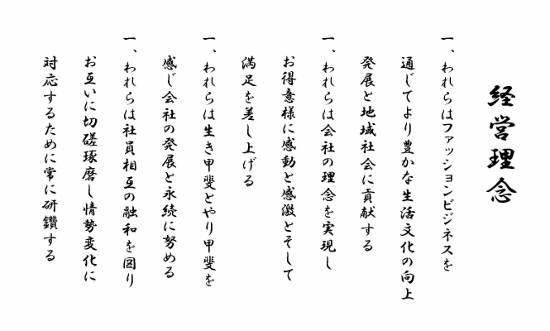 経営理念
一、われらはファッションビジネスを
通じてより豊かな生活文化の向上
発展と地域社会に貢献する
一、われらは会社の理念を実現し
お得意様に感動と感激とそして
満足を差し上げる
一、われらは生き甲斐とやり甲斐を
感じ会社の発展と永続に努める
一、われらは社員相互の融和を図り
お互いに切磋琢磨し情勢変化に
対応するために常に研鑽する